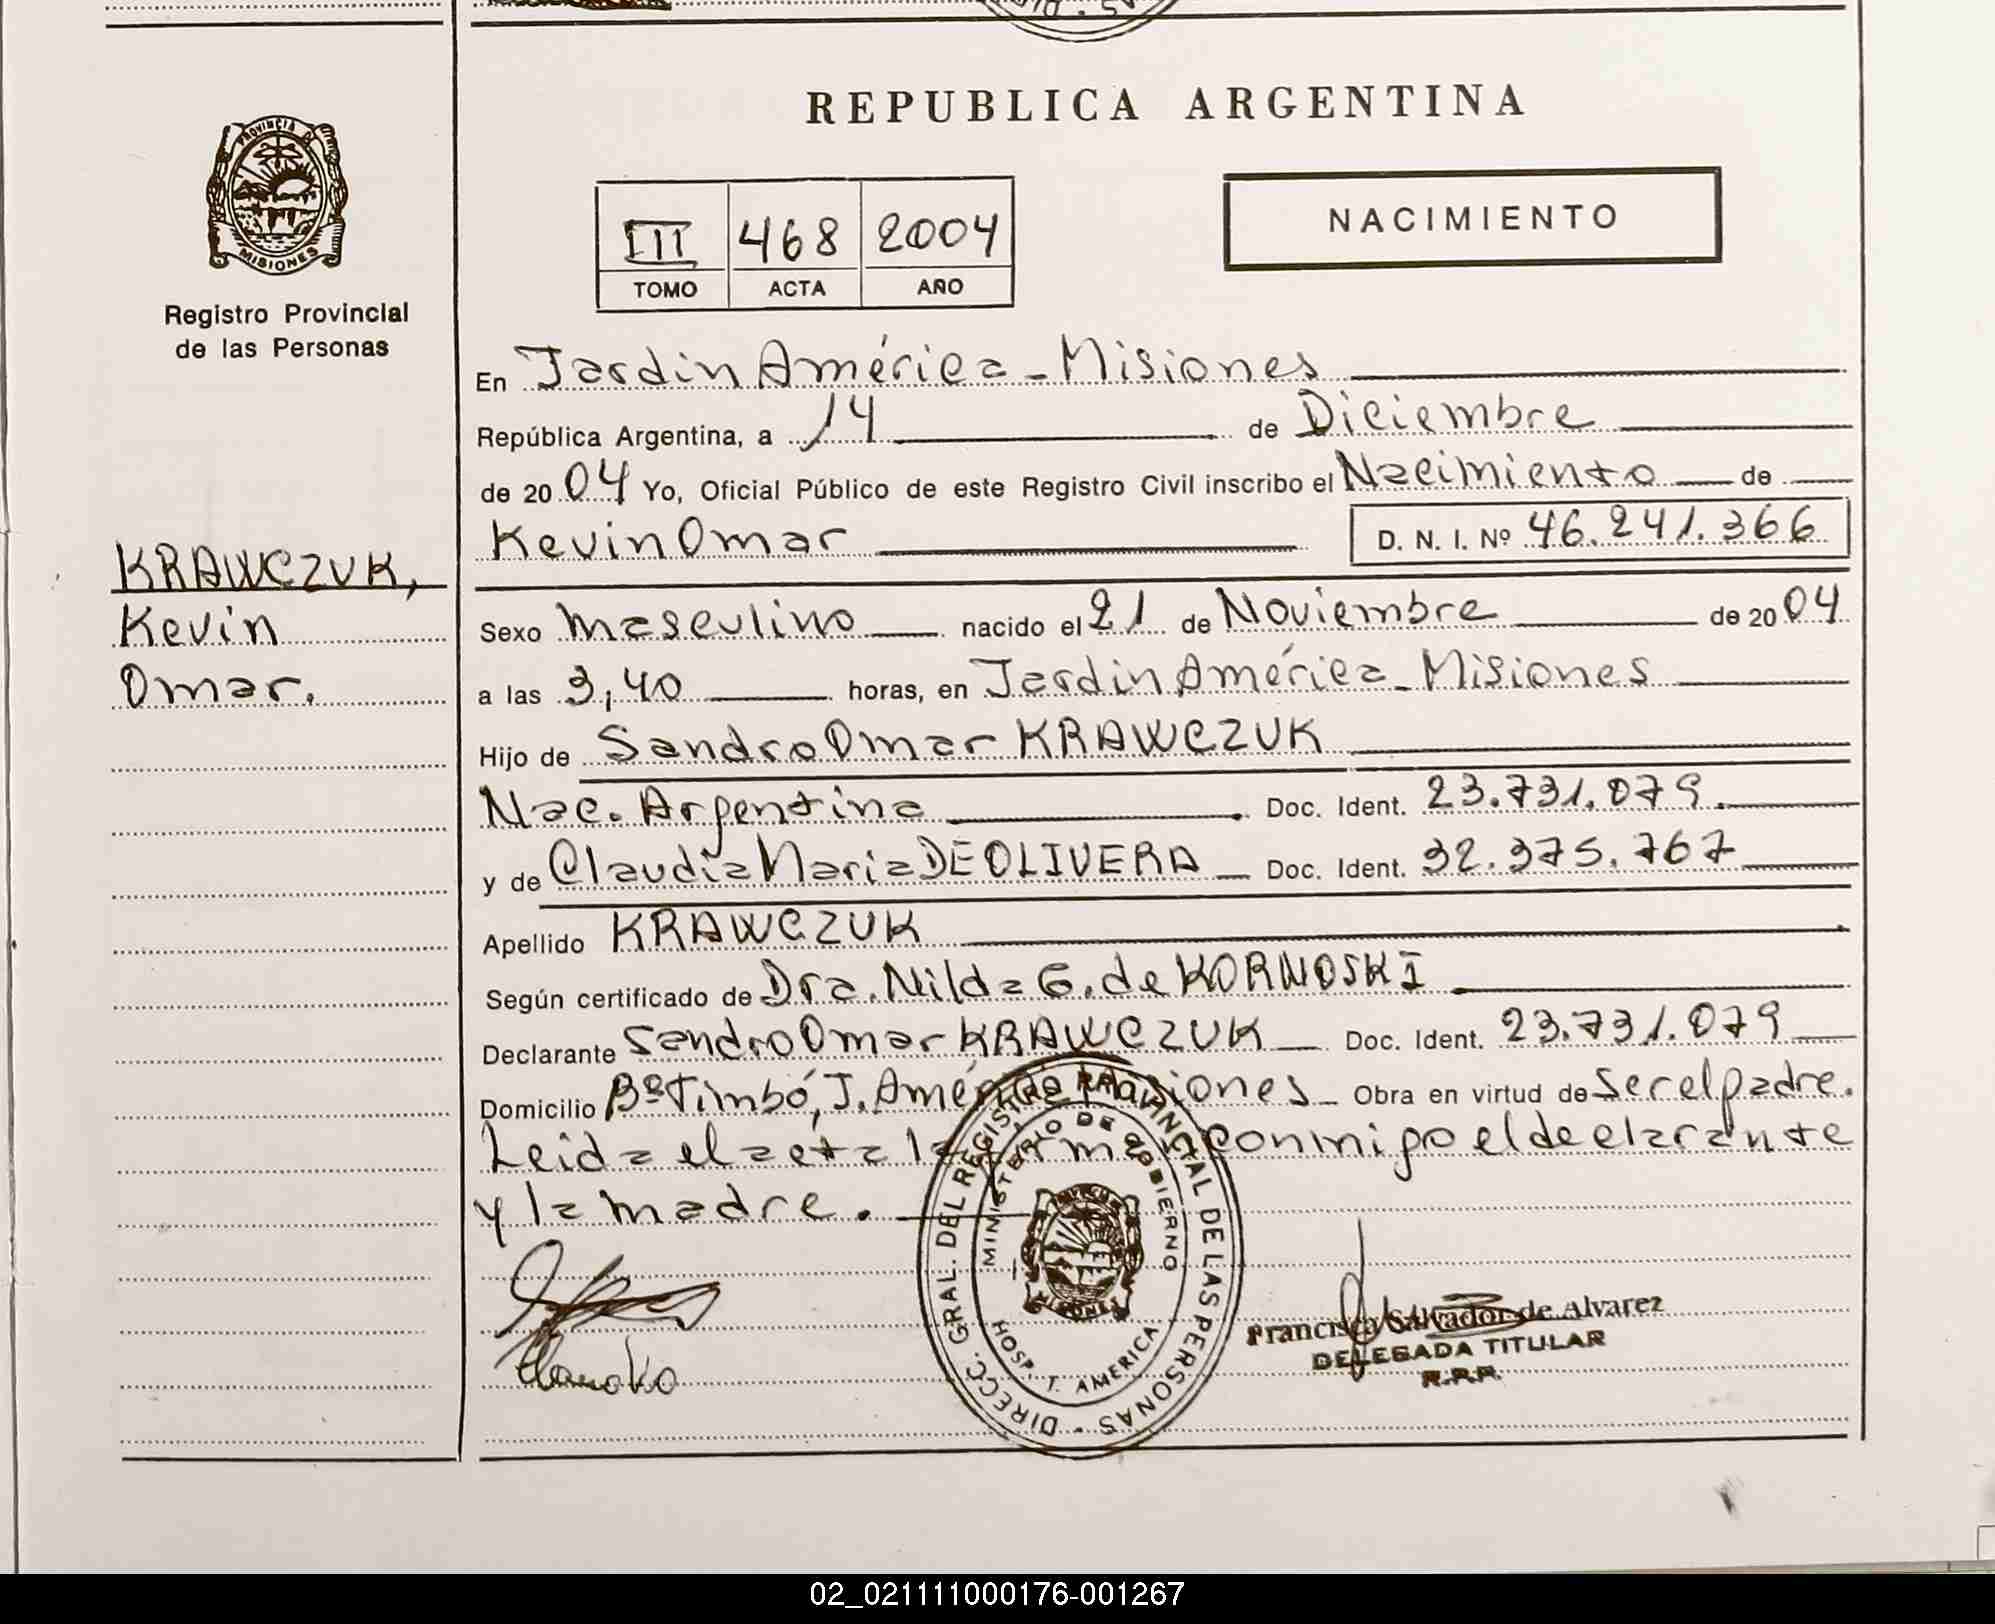 REPUBLICA ARGENTINA
PROVINCIA DE
MISIONES
Registro Provincial
de las Personas
III 468 2004
TOMO ACTA AÑO
NACIMIENTO
En Jardin América - Misiones
República Argentina, a 14 de Diciembre
de 2004 Yo, Oficial Público de este Registro Civil inscribo el Nacimiento de
Kevin Omar D. N. I. Nº 46.241.366
KRAWCZUK,
Kevin
Omar.
Sexo masculino nacido el 21 de Noviembre de 2004
a las 3,40 horas, en Jardin América - Misiones
Hijo de Sandro Omar KRAWCZUK
Nac. Argentina Doc. Ident. 23.731.079.
y de Claudia Maria DE OLIVERA Doc. Ident. 32.375.767
Apellido KRAWCZUK
Según certificado de Dra. Nilda G. de KORNOSKI
Declarante Sandro Omar KRAWCZUK Doc. Ident. 23.731.079
Domicilio Bº Timbó, J. América Misiones Obra en virtud de Ser el padre.
Leida el acta la conmigo el declarante
y la madre.
DIRECC. GRAL. DEL REGISTRO PROVINCIAL DE LAS PERSONAS
MINISTERIO DE GOBIERNO
MISIONES
HOSP. J. AMERICA
Francisca Salvador de Alvarez
DELEGADA TITULAR
R.P.P.
02_021111000176-001267